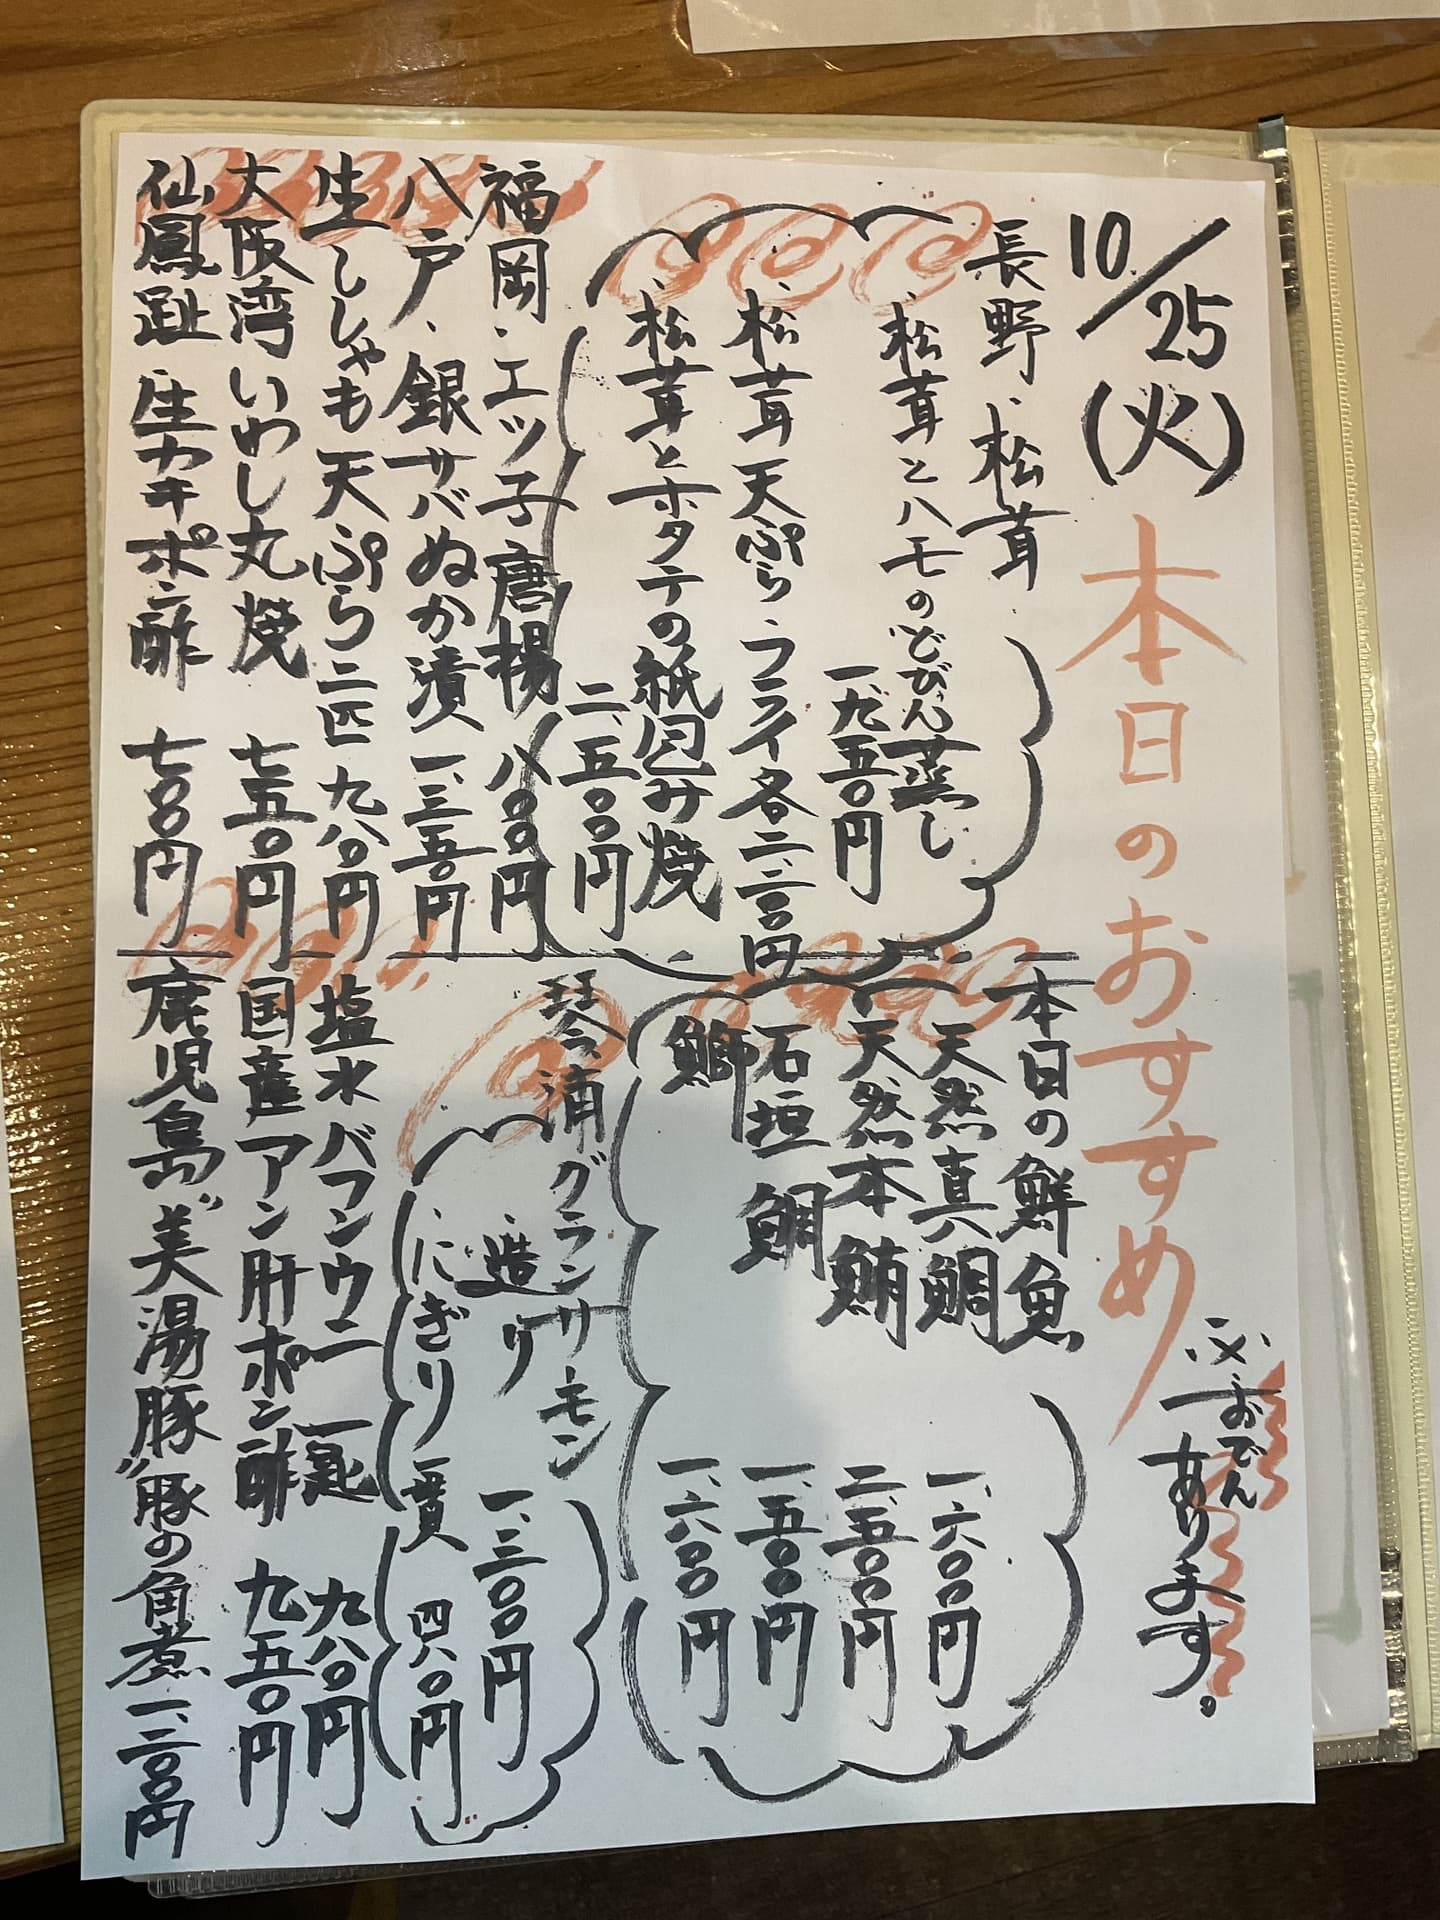 10/25(火)
本日のおすすめ
※おでん
あります。
長野・松茸
・松茸とハモのどびん蒸し
一、九五〇円
・松茸天ぷら・フライ各二、二〇〇円
・松茸とホタテの紙包み焼
二、五〇〇円
福岡・エツ子唐揚 八〇〇円
八戸・銀サバぬか漬 一、三五〇円
生ししゃも天ぷら二匹 九八〇円
大阪湾いわし丸焼 七五〇円
仙鳳趾 生カキポン酢 七〇〇円
本日の鮮魚
天然真鯛 一、六〇〇円
天然本鮪 二、五〇〇円
石垣鯛 一、五〇〇円
鰤 一、六〇〇円
琴浦グランサーモン
・造り 一、三〇〇円
・にぎり一貫 四八〇円
塩水バフンウニ一匙 九八〇円
国産アン肝ポン酢 九五〇円
鹿児島"美湯豚"豚の角煮 一、二〇〇円